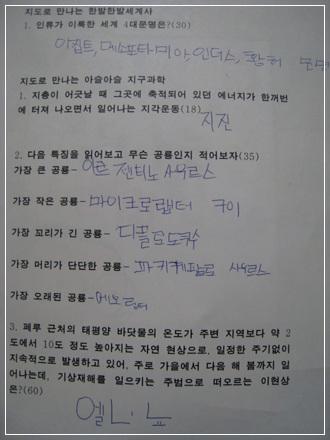 지도로 만나는 한발한발세계사
1. 인류가 이룩한 세계 4대문명은?(30)
이집트, 메소포타미아, 인더스, 황허 문명
지도로 만나는 아슬아슬 지구과학
1. 지층이 어긋날 때 그곳에 축적되어 있던 에너지가 한꺼번
에 터져 나오면서 일어나는 지각운동(18)
지진
2. 다음 특징을 읽어보고 무슨 공룡인지 적어보자(35)
가장 큰 공룡- 아르젠티노사우르스
가장 작은 공룡- 마이크로랩터 구이
가장 꼬리가 긴 공룡- 디플로도쿠스
가장 머리가 단단한 공룡- 파키케팔로 사우르스
가장 오래된 공룡-
3. 페루 근처의 태평양 바닷물의 온도가 주변 지역보다 약 2
도에서 10도 정도 높아지는 자연 현상으로, 일정한 주기없이
지속적으로 발생하고 있어, 주로 가을에서 다음 해 봄까지 일
어나는데, 기상재해를 일으키는 주범으로 떠오르는 이현상
은?(60)
엘니뇨